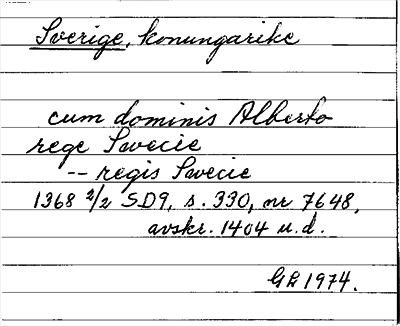 Sverige, konungarike
cum dominis Alberto
rege Swecie
-- regis Swecie
1368 2/2 SD9, s. 330, nr 7648,
avskr. 1404 u.d.
GL 1974.